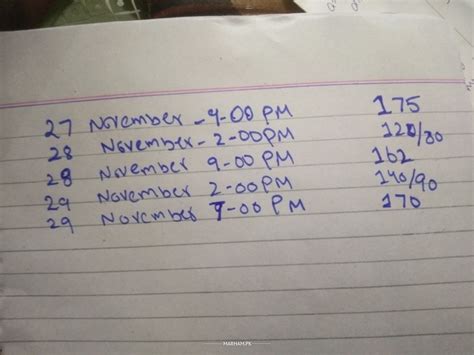 27 November - 9-00 PM 175
28 November - 2-00 PM 120/80
28 November 9-00 PM 162
29 November 2-00 PM 140/90
29 November 9-00 PM 170
MARHAM.PK